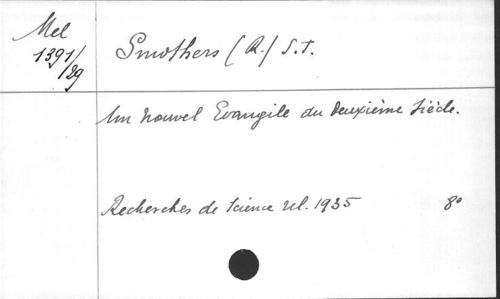 Mel
1391/
/29
Smothers (R.) S.T.
Un nouvel Evangile du Deuxième Siècle.
Recherches de Science rel. 1935 8°